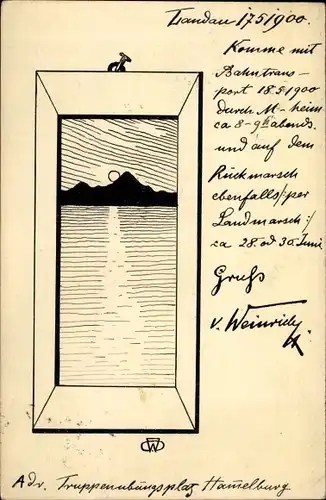 Landau 17 5/1900.
Komme mit
Bahntrans-
port 18.5.1900
durch M-heim
ca 8-9h abends.
und auf dem
Rückmarsch
ebenfalls /: per
Landmarsch :/
ca 28. od 30. Juni
Gruß
v. Weinrich
Adr. Truppenübungsplatz Hamelburg